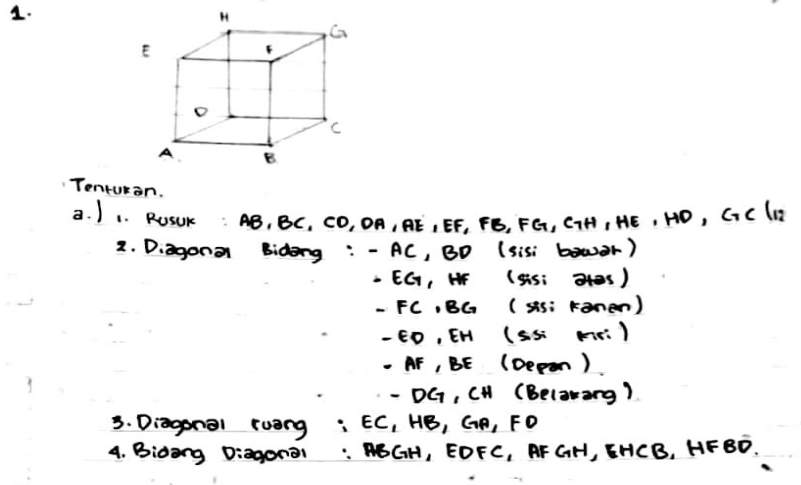 1.
H
G
E
F
D
C
A
B
Tentukan.
a.) 1. Rusuk : AB, BC, CD, DA, AE, EF, FB, FG, GH, HE, HD, GC (12
2. Diagonal Bidang : - AC, BD (sisi bawah)
- EG, HF (sisi atas)
- FC, BG (sisi kanan)
- ED, EH (sisi kiri)
- AF, BE (Depan)
- DG, CH (Belakang)
3. Diagonal ruang : EC, HB, GA, FD
4. Bidang Diagonal : ABGH, EDFC, AFGH, EHCB, HFBD.